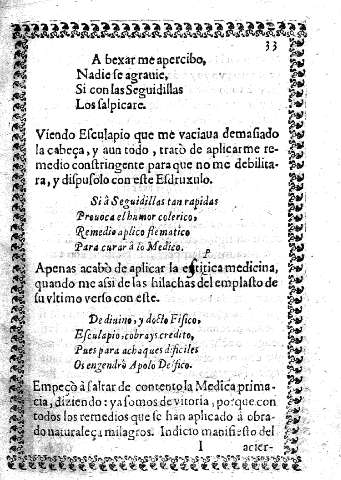 33
A bexar me apercibo,
Nadie se agrauie,
Si con las Seguidillas
Los salpicare.
Viendo Esculapio que me vaciaua demasiado
la cabeça, y aun todo, tratò de aplicarme re-
medio constringente para que no me debilita-
ra, y dispusolo con este Esdruxulo.
Si à Seguidillas tan rapidas
Prouoca el humor colerico,
Remedio aplico flematico
Para curar à lo Medico.
Apenas acabò de aplicar la estitica medicina,
quando me assi de las hilachas del emplasto de
su vltimo verso con este.
De diuino, y docto Fisico,
Esculapio, cobrays credito,
Pues para achaques dificiles
Os engendrò Apolo Deifico.
Empeçò à saltar de contento la Medica prima-
cia, diziendo: ya somos de vitoria, porque con
todos los remedios que se han aplicado à obra-
do naturaleça milagros. Indicio manifiesto del
I acier-